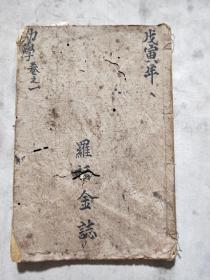 戊寅年
羅金誌
幼學卷之一